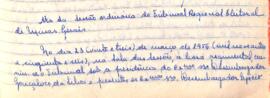 Ata da sessão ordinaria do Tribunal Regional Eleitoral
de Minas Gerais.
No dia 23 (vinte e três) de março de 1956 (mil novecentos
e cinquenta e seis), na sala das sessões, à hora regimental,
o Tribunal sob a presidencia do Exmo. Sr. Desembargador
Gonçalves da Silva e presentes os Exmos. Srs. Desembargador